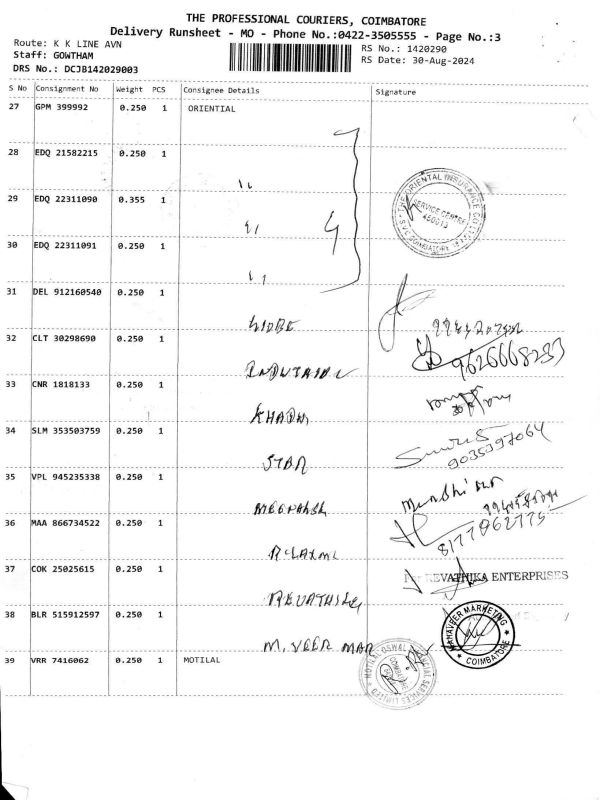 THE PROFESSIONAL COURIERS, COIMBATORE
Delivery Runsheet - MO - Phone No.:0422-3505555 - Page No.:3
Route: K K LINE AVN
RS No.: 1420290
Staff: GOWTHAM
RS Date: 30-Aug-2024
DRS No.: DCJB142029003
S No Consignment No Weight PCS Consignee Details Signature
27 GPM 399992 0.250 1 ORIENTIAL
28 EDQ 21582215 0.250 1
29 EDQ 22311090 0.355 1 4
THE ORIENTAL INSURANCE CO LTD
SERVICE CENTRE
450013
SVC COIMBATORE
30 EDQ 22311091 0.250 1
31 DEL 912160540 0.250 1
GLOBE
32 CLT 30298690 0.250 1
9626668233
33 CNR 1818133 0.250 1
KHADI
34 SLM 353503759 0.250 1
STAR
9035397064
35 VPL 945235338 0.250 1
36 MAA 866734522 0.250 1
8177962775
37 COK 25025615 0.250 1
For REVATHIKA ENTERPRISES
38 BLR 515912597 0.250 1
M. VEER MAR
MAHAVEER MARKETING
COIMBATORE
39 VRR 7416062 0.250 1 MOTILAL
MOTILAL OSWAL FINANCIAL SERVICES LIMITED
COIMBATORE